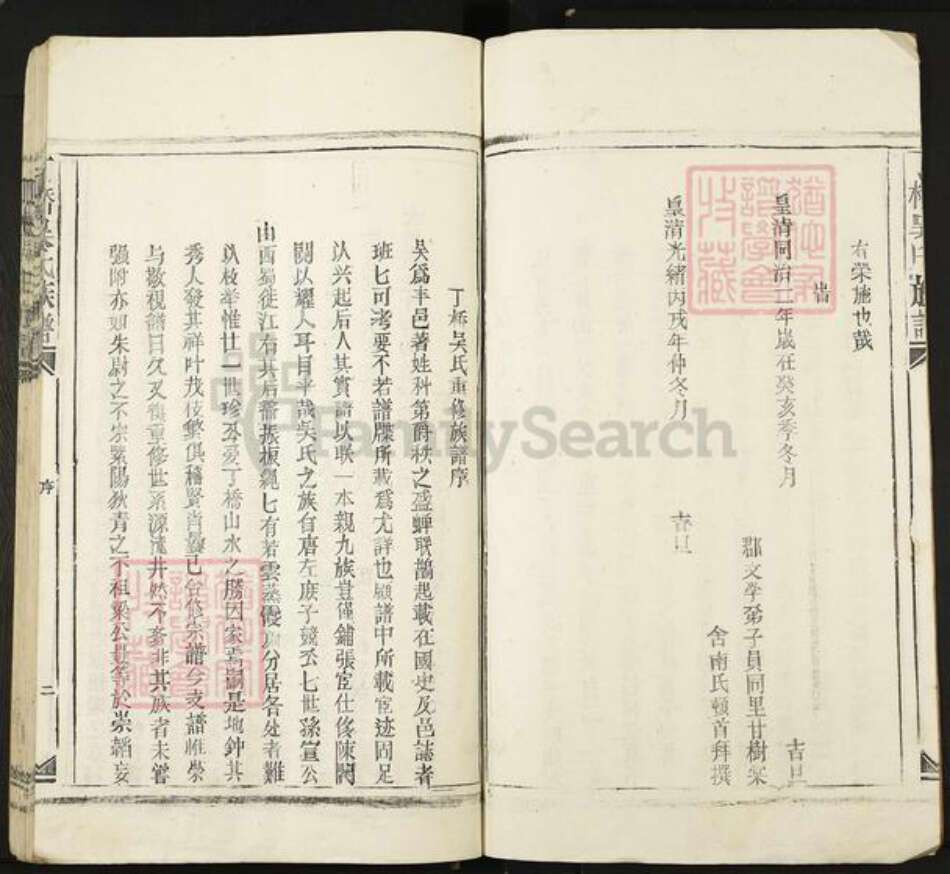 右榮施也哉
旹
皇清同治二年歲在癸亥季冬月
吉旦
郡文學弟子員同里甘樹棠
舍南氏頓首拜撰
皇清光緒丙戌年仲冬月
吉旦
丁橋吳氏重修族譜序
吳爲丰邑著姓科第爵秩之盛蟬聯鵲起載在國史及邑誌者
班匕可考要不若譜牒所載爲尤詳也顧譜中所載宦迹固足
以興起后人其實譜以联一本親九族豈僅鋪張宦仕侈陳閥
閱以耀人耳目乎哉吳氏之族自唐左庶子競公七世孫宣公
由西蜀徙江右其后蕃振椒繩匕有若雲蒸霞 分居各处者難
以枚举惟廿一世珍公爱丁橋山水之勝因家焉嗣是地鈡其
秀人發其祥叶茂枝繁俱稱賢肖曩已合修宗譜今支譜惟榮
与敬視譜日久又復重修世系源流井然不紊非其族者未嘗
强附亦如朱尉之不宗紫陽狄青之不祖梁公豈等於崇韜妄
橋吳氏族譜
序
二
猶他家譜學會收藏